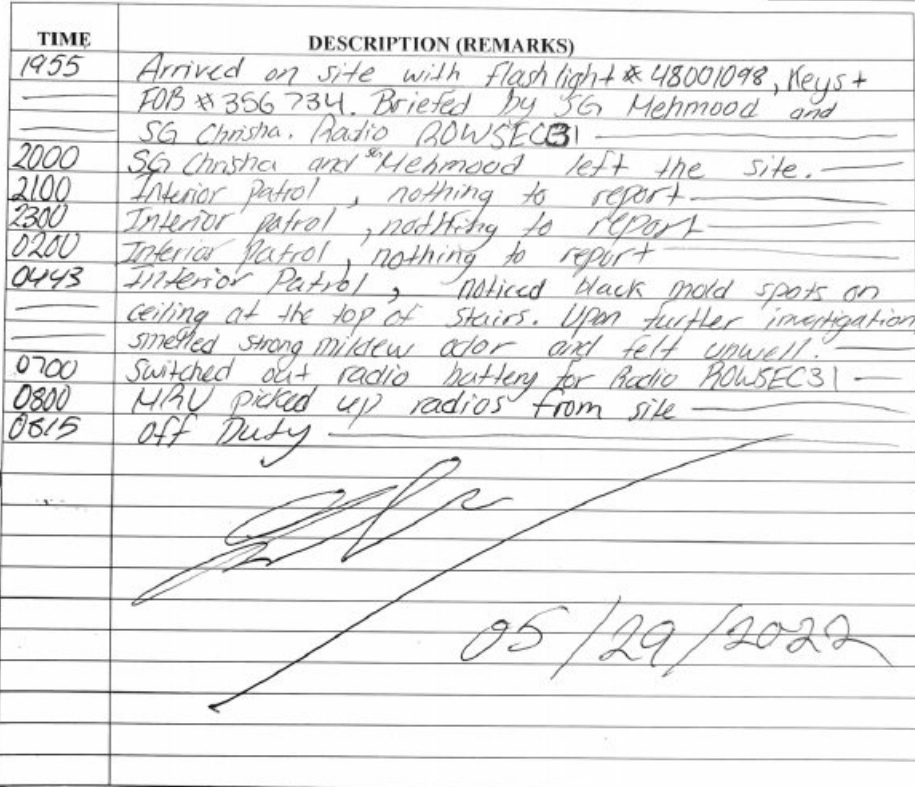 TIME DESCRIPTION (REMARKS)
1955 Arrived on site with flashlight # 48001098, Keys +
FOB # 356734. Briefed by SG Mehmood and
SG Chrisha. Radio ROWSEC31
2000 SG Chrisha and SG Mehmood left the site.
2100 Interior patrol, nothing to report
2300 Interior patrol, nothing to report
0200 Interior Patrol, nothing to report
0443 Interior Patrol, noticed black mold spots on
ceiling at the top of stairs. Upon further invertigation
smelled strong mildew odor and felt unwell.
0700 Switched out radio battery for Radio ROWSEC31
0800 MRU picked up radios from site
0815 Off Duty
05/29/2022